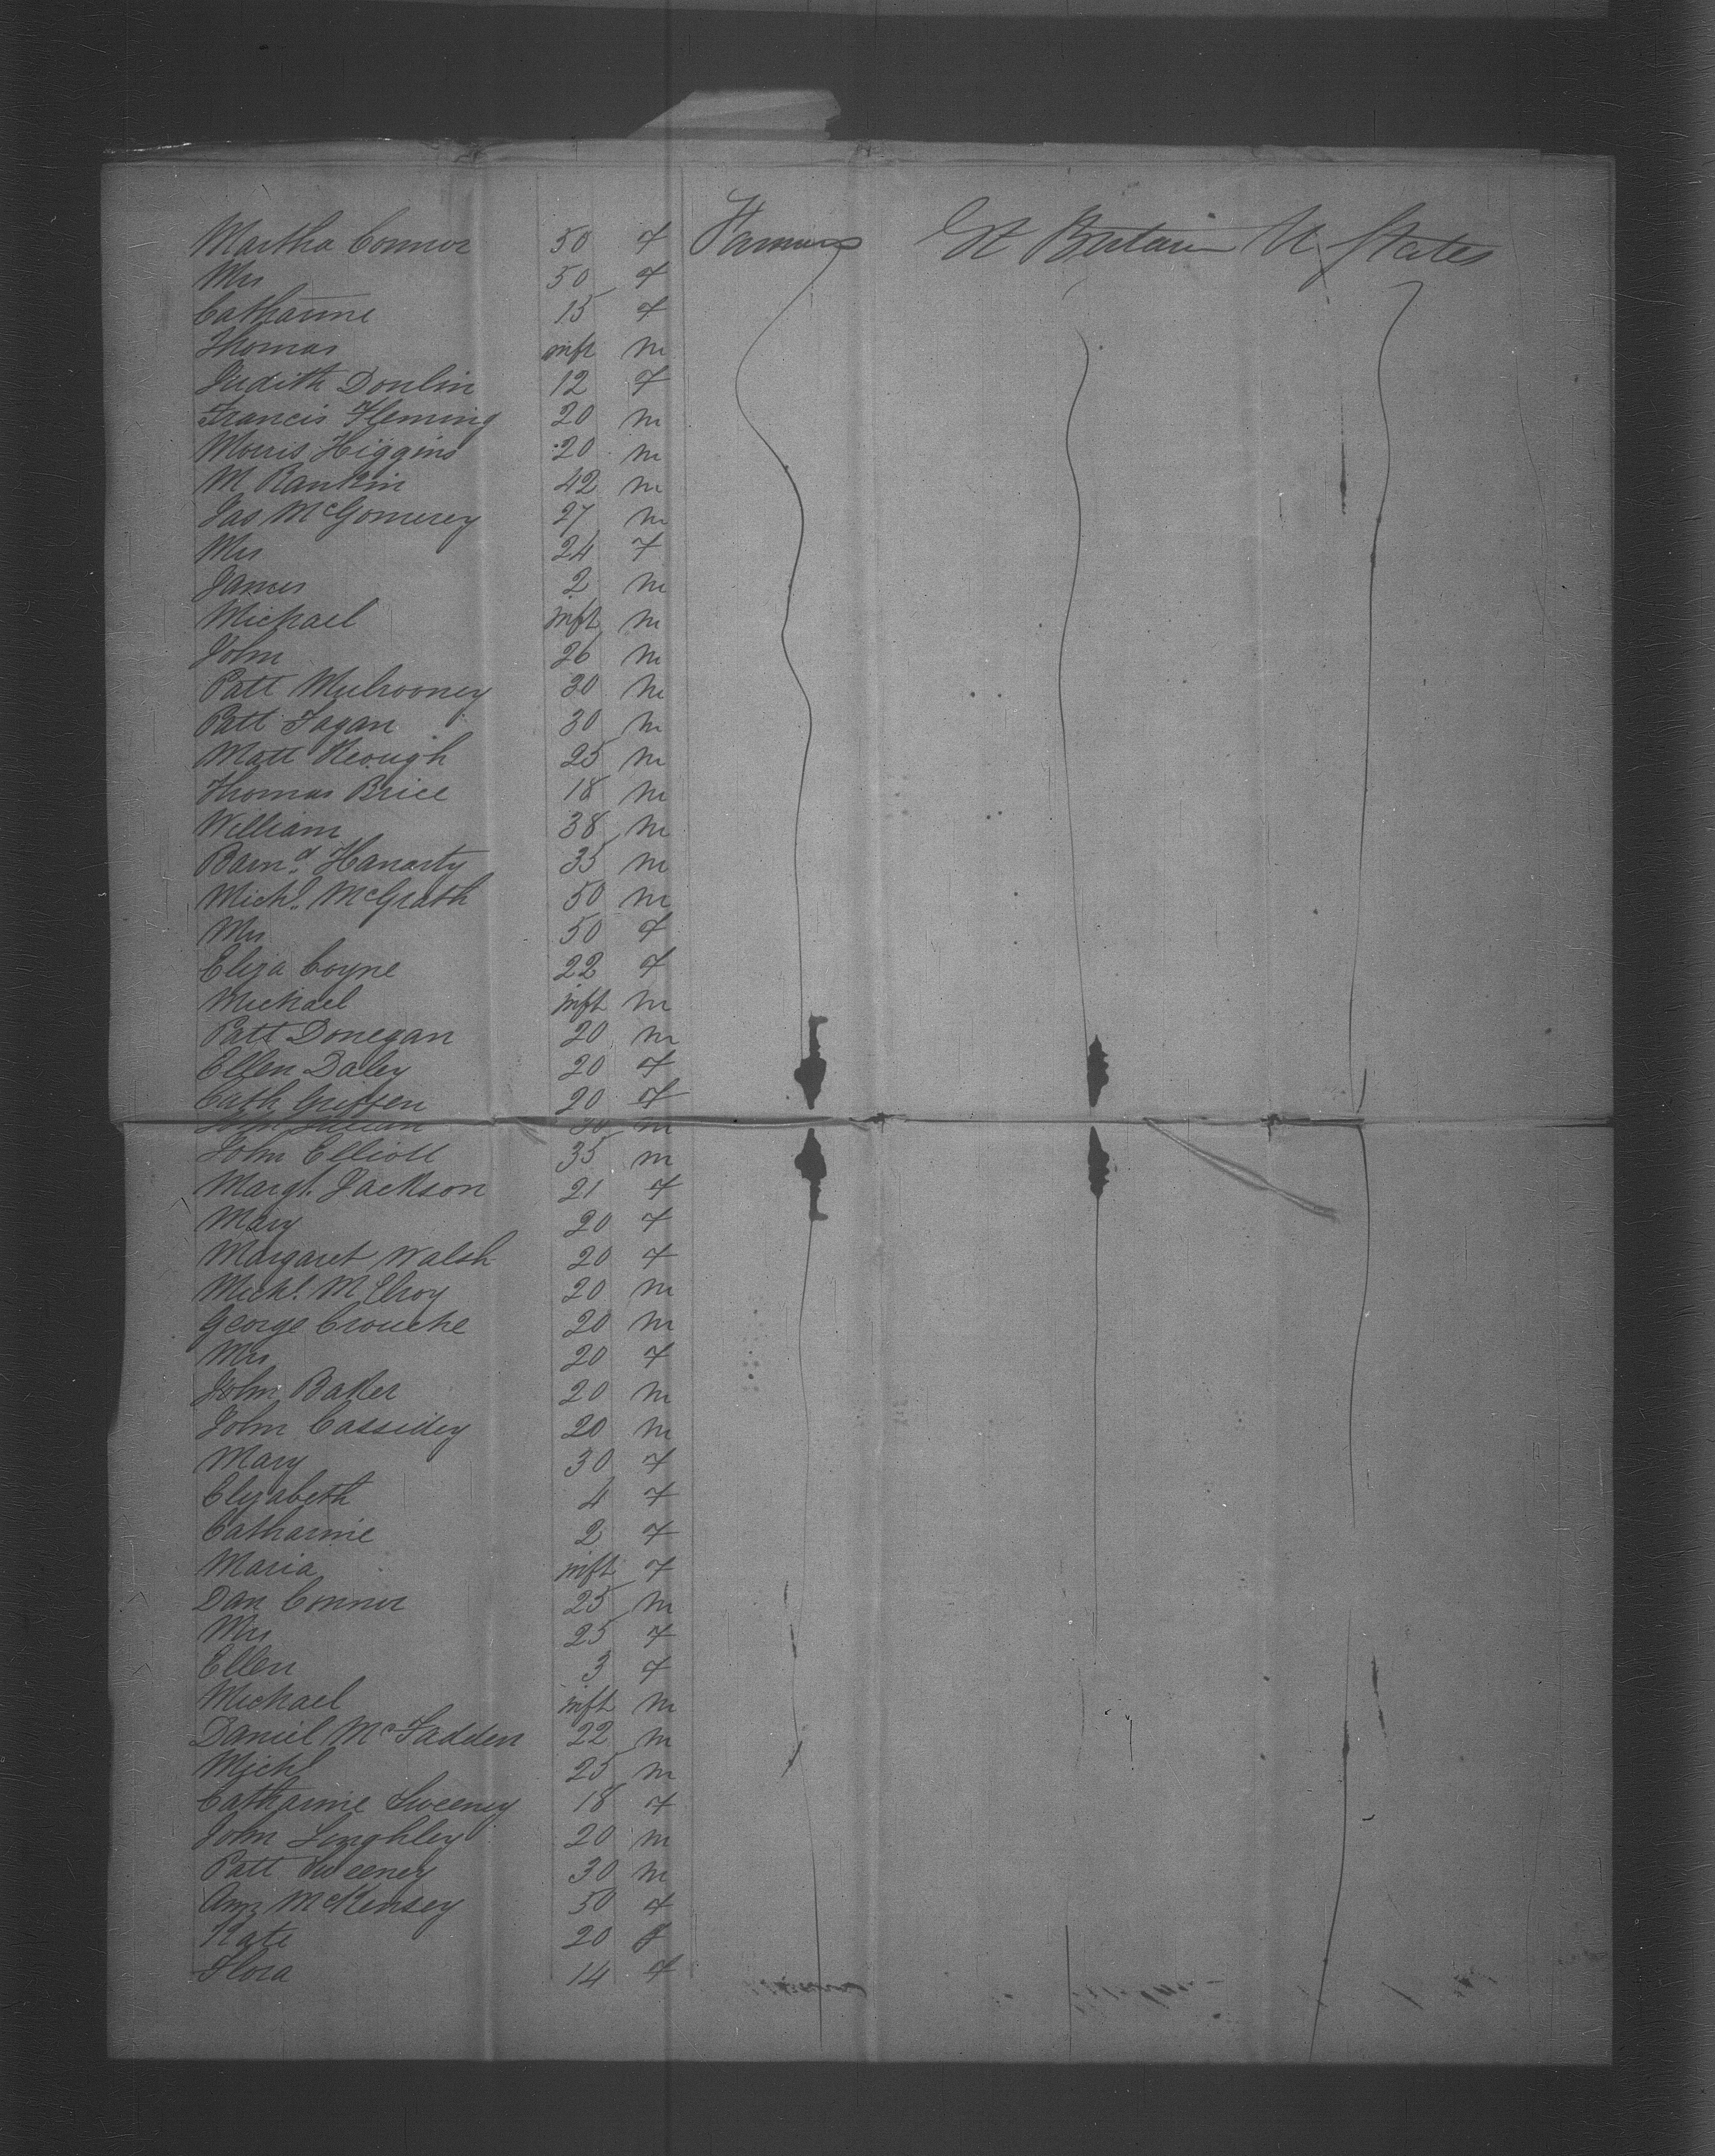 Martha Connor 50 f Farmers Gt Britain U States
Mrs 50 f
Catharine 15 f
Thomas inft m
Judith Donlin 12 f
Francis Fleming 20 m
Morris Higgins 20 m
M Rankin 42 m
Jas McGomerey 27 m
Mrs 24 f
James 2 m
Michael inft m
John 26 m
Patt Mulrooney 30 m
Patt Fagan 30 m
Matt Keough 25 m
Thomas Brice 18 m
William 38 m
Barnd Hanarty 35 m
Michl. McGrath 50 m
Mrs 50 f
Eliza Coyne 22 f
Michael inft m
Patt Donegan 20 m
Ellen Daley 20 f
Cath Griffen 20 f
John m
John Elliott 35 m
Margt. Jackson 21 f
Mary 20 f
Margaret Walsh 20 f
Michl. McElroy 20 m
George Crouche 20 m
Mrs 20 f
John Baker 20 m
John Cassidey 20 m
Mary 30 f
Elizabeth 4 f
Catharine 2 f
Maria inft f
Dan Connor 25 m
Mrs 25 f
Ellen 3 f
Michael inft m
Daniel McFadden 22 m
Michl 25 m
Catharine Sweeney 18 f
John Linghley 20 m
Patt Sweeney 30 m
Ann McKensey 50 f
Kate 20 f
Flora 14 f